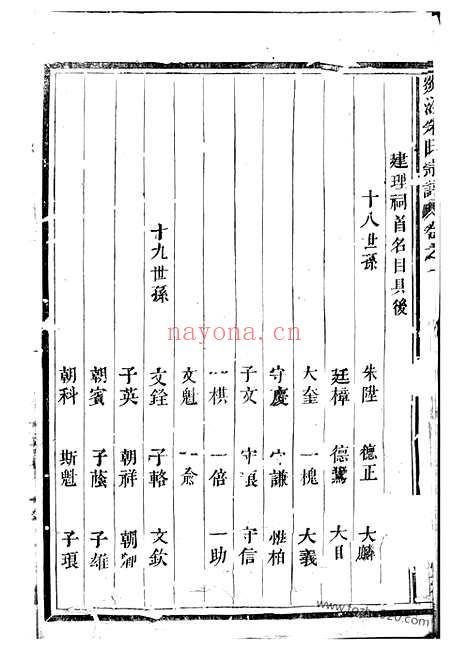 朱氏宗譜 卷之一
建理祠首名目具後
十八世孫
朱陞 德正 大麟
廷樟 德鸞 大目
大奎 一槐 大義
守慶 守謙 惟柏
子文 守信
一棋 一倍 一助
文魁
十九世孫
文銓 子輅 文欽
子英 朝祥
朝賓 子蔭 子雄
朝科 斯魁 子琅
nayona.cn